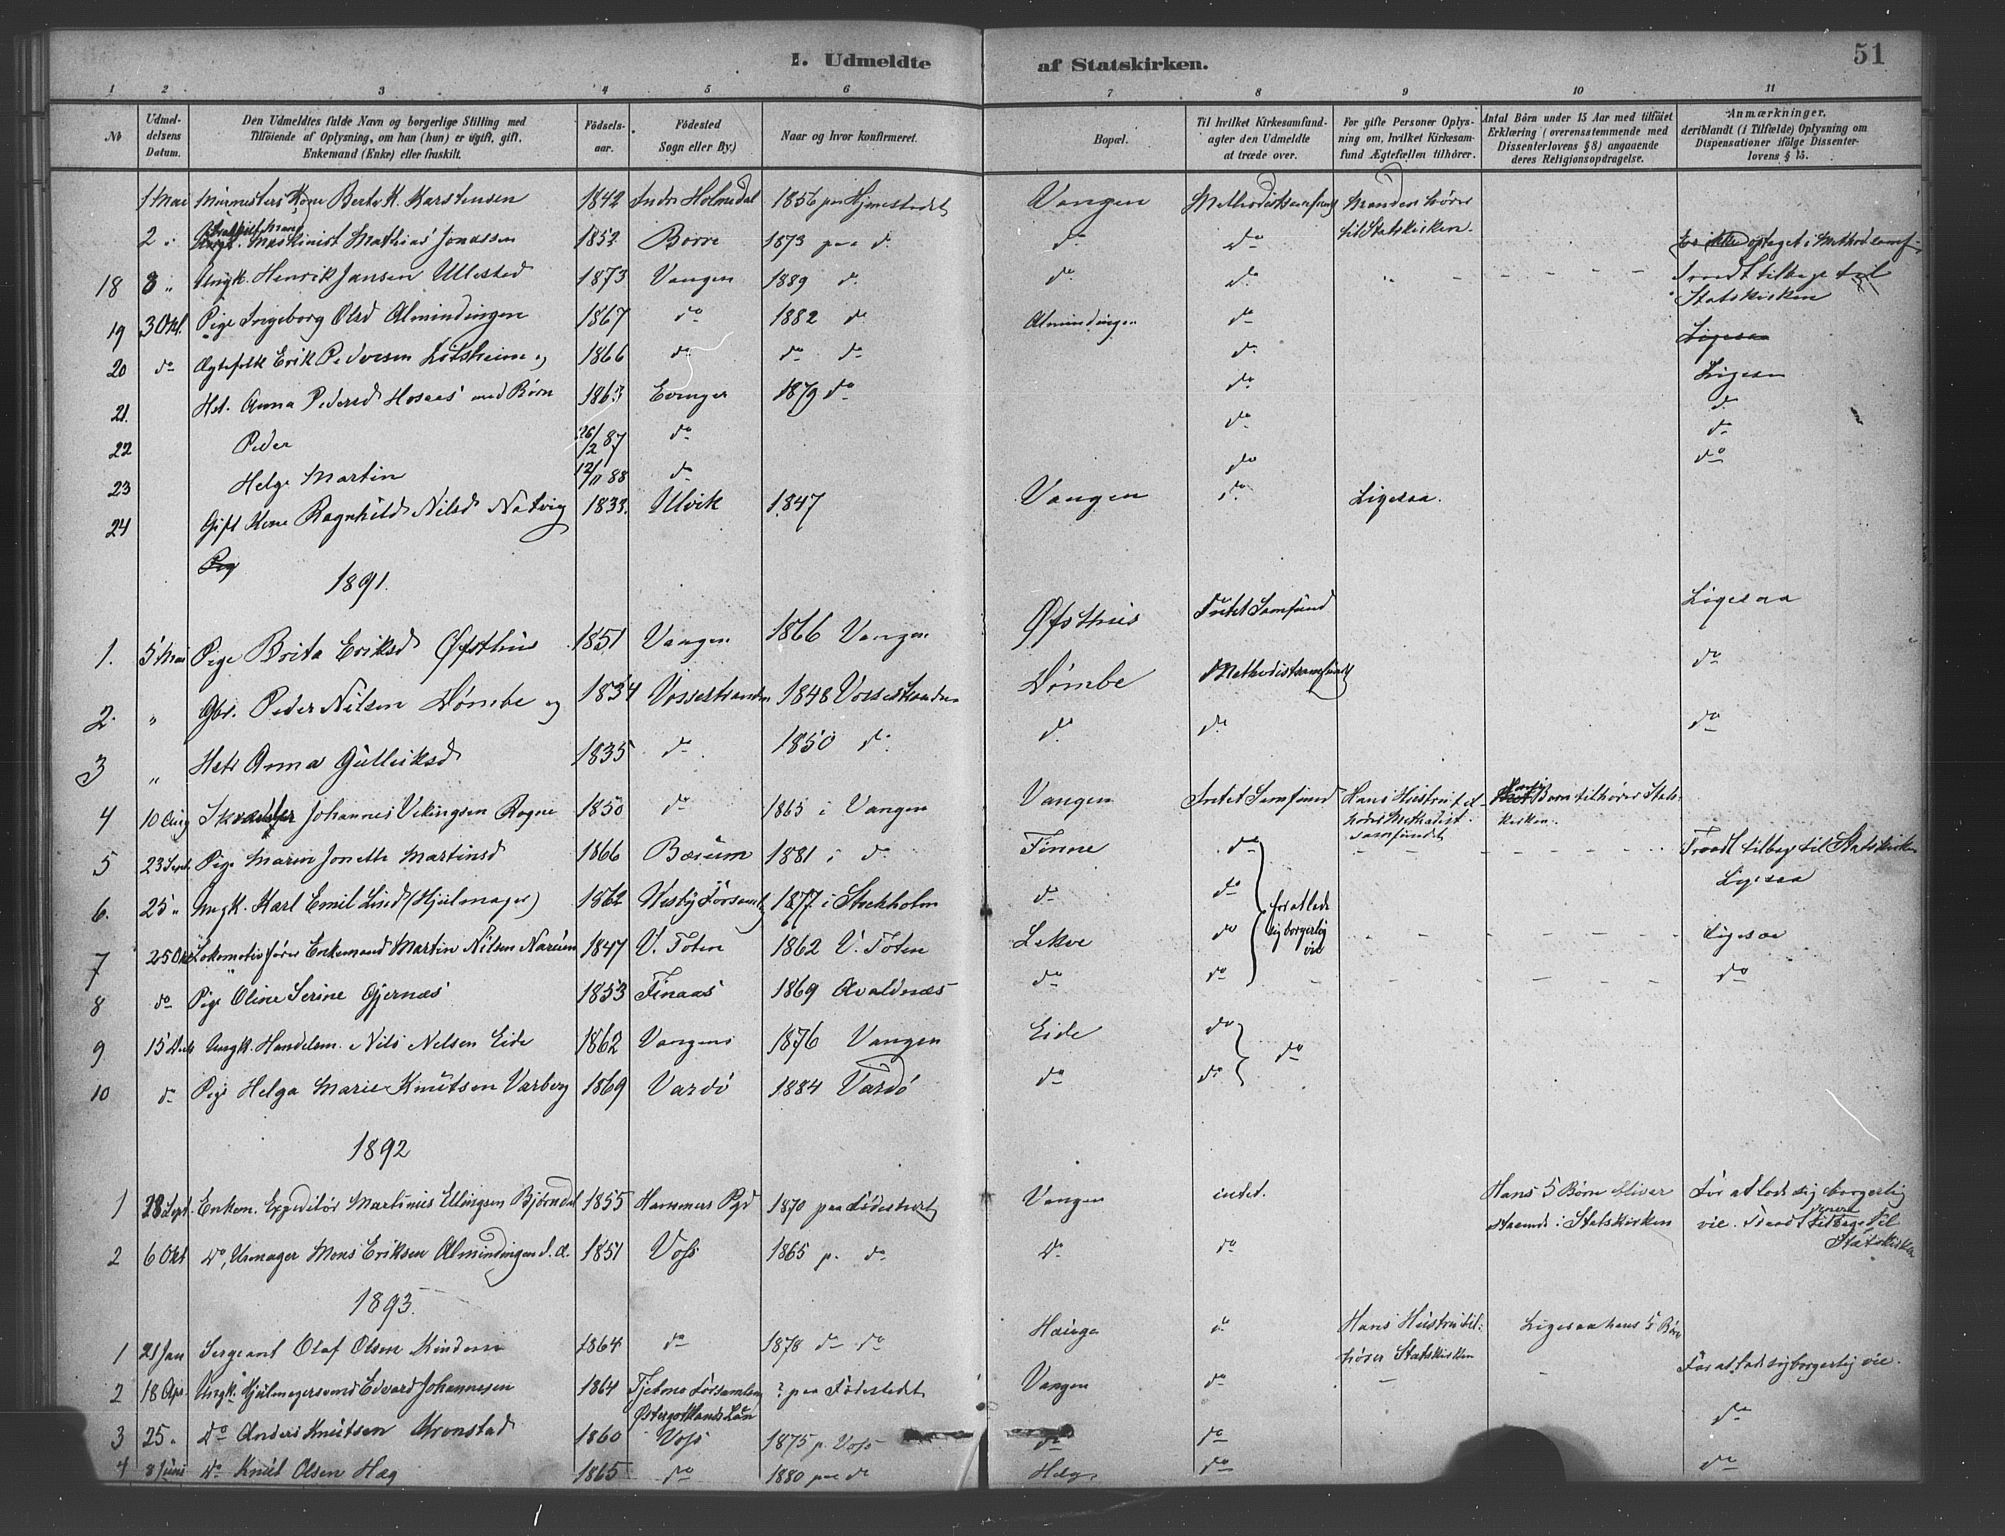 I. Udmeldte af Statskirken. 51
1 2 3 4 5 6 7 8 9 10 11
No
Udmel-
delsens
Datum.
Den Udmeldtes fulde Navn og borgerlige Stilling med
Tilføiende af Oplysning, om han (hun) er ugift, gift,
Enkemand (Enke) eller fraskilt.
Fødsels-
aar.
Fødested
Sogn eller By.)
Naar og hvor konfirmeret.
Bopæl.
Til hvilket Kirkesamfund
agter den Udmeldte
at træde over.
For gifte Personer Oplys-
ning om, hvilket Kirkesam-
fund Ægtefællen tilhører.
Antal Børn under 15 Aar med tilføiet
Erklæring (overensstemmende med
Dissenterlovens § 8) angaaende
deres Religionsopdragelse.
Anmærkninger,
deriblandt (i Tilfælde) Oplysning om
Dispensationer ifølge Dissenter-
lovens § 15.
1 Mai Murmesters Kone Berte K. Karstensen 1842 Indre Holmedal 1856 paa Hjemstedet Vangen Methodistsamfund Manden hører
til Statskirken.
2 " Maskinist Mathias Jonassen 1852 Borre 1873 paa do do do Er ikke optaget i Methodsamf.
18 8 " Ungk. Henrik Jansen Ullestad 1873 Vangen 1889 do do do Traadt tilbage til
Statskirken
19 3 Okt. Pige Ingeborg Olsd Almindingen 1867 do 1882 do Almindingen do Ligesaa
20 do Ægtefolk Erik Pedersen Lidsheim og 1866 do do do do Ligesaa
21. Hst. Anna Pedersd Hosaas med Børn 1863 Evanger 1879 do do do
22 Peder 26/2 87 do do do
23 Helge Martin 12/11 88 do do do
24 Gift Kone Ragnhild Nilsd Natvig 1833. Ulvik 1847 Vangen do Ligesaa.
Pig
1891.
1. 5 Mai Pige Brita Eriksd Øfsthus 1851 Vangen 1866 Vangen Øfsthus Intet Samfund Ligesaa
2. " Gbr. Peder Nilsen Dømbe og 1834 Vossestranden 1848 Vossestranden Dømbe Methodistsamfundet do
3 " Hstr Anna Gulleiksd 1835 do 1850 do do do do
4 10 Aug Skrædder Johannes Vikingsen Rogne 1850 do 1865 i Vangen Vangen Intet Samfund Hans Hustru til
hører Methodist
samfundet
Børn tilhører Stats
kirken.
5 23 Sept Pige Maren Jonette Martinsd 1866 Bærum 1881 i do Finne do Traadt tilbage til Statskirken
6. 25 " Ungk. Karl Emil Lind (Hjulmager) 1862 Visby Forsamlg 1877 i Stockholm do do for at lade
sig borgerlig
vie Ligesaa
7 25 Okt Lokomotivfører Enkemand Martin Nilsen Narum 1847 V. Toten 1862 V. Toten Lekve do Ligesaa
8 do Pige Oline Serine Gjernæs 1853 Finaas 1869 Avaldnæs do do do
9 15 Decb Ungk. Handelsm. Nils Nelsen Eide 1862 Vangens 1876 Vangen Eide do do
10 do Pige Helga Marie Knutsen Varberg 1869 Vardø 1884 Vardø do do
1892
1 28 Sept. Enkem. Expeditør Martinius Ellingsen Bjørndal 1855 Hammers Pgd 1870 paa Fødestedet Vangen intet. Hans 5 Børn bliver
staaende i Statskirken For at lade sig borgerlig
vie. Traadt senere tilbage til
Statskirken
2 6 Okt Do, Urmager Mons Eriksen Almindingen d. æ. 1851 Voss 1865 p. do do do
1893.
1 21 Jan Sergeant Olaf Olsen Kindem 1864 do 1878 do do Hauge do Hans Hustru til-
hører Statskirken Ligesaa hans 5 Børn
2 18 Apr. Ungk. Hjulmagersvend Edvard Johannesen 1864 Tjelmo Forsamling
Østergotlands Län ? paa Fødestedet Vangen do For at lade sig borgerlig vie.
3 25 " Do Anders Knutsen Kronstad 1860 Voss 1875 p. Voss do do do
4 8 Juni Do Knut Olsen Hæg 1865 do 1880 paa do do do